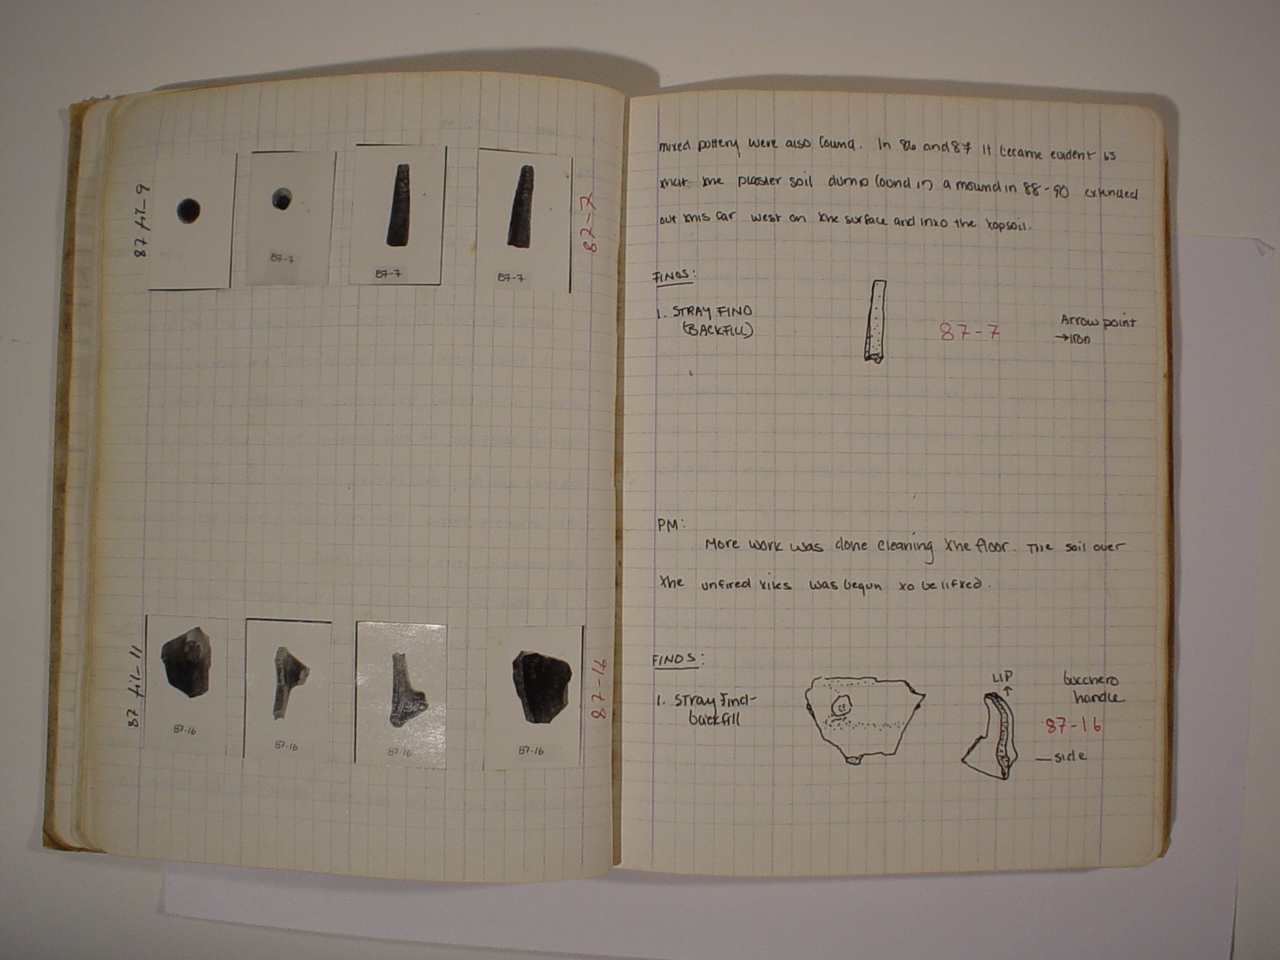 87 fil-9
87-7
87-7
87-7
87-7
87 fil-11
87-16
87-16
87-16
87-16
87-16
mixed pottery were also found. In 86 and 87 it became evident 65
that the plaster soil dump found in a mound in 88-90 extended
out this far west on the surface and into the topsoil.
FINDS:
1. STRAY FIND
(BACKFILL)
87-7
Arrow point
→ iron
PM:
More work was done cleaning the floor. The soil over
the unfired tiles was begun to be lifted.
FINDS:
1. Stray Find-
backfill
LIP
↑
bucchero
handle
87-16
— side